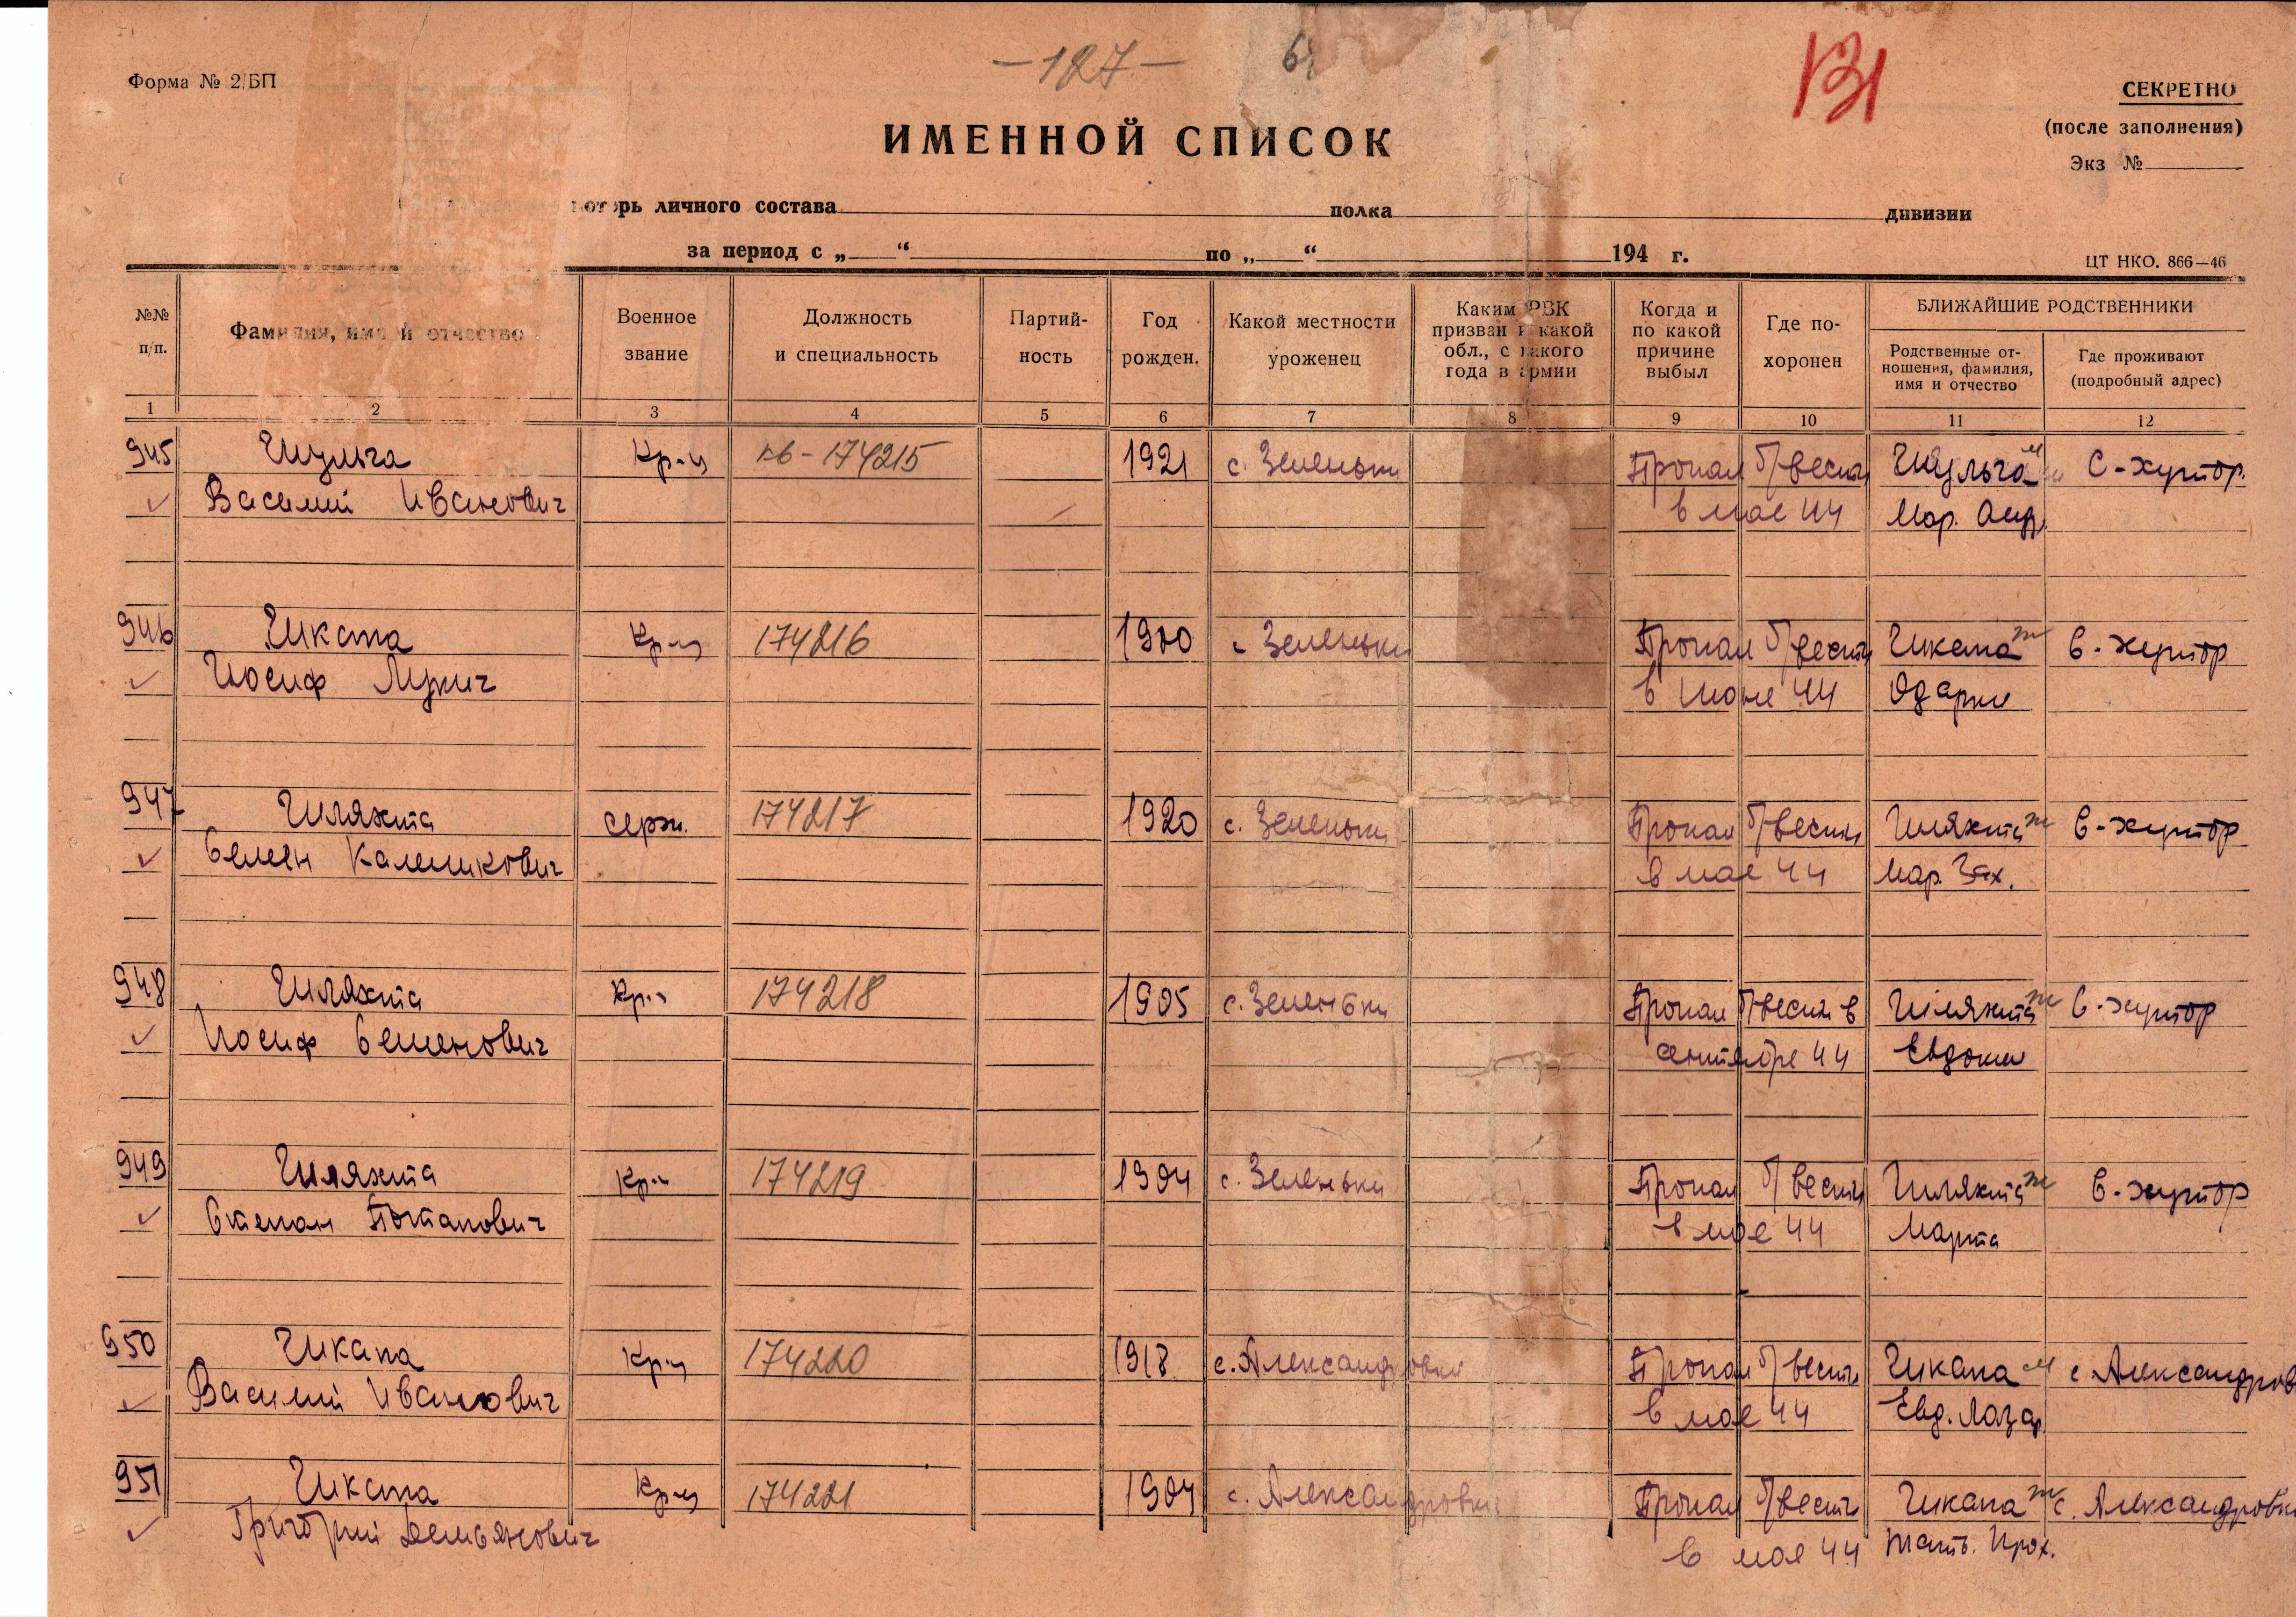 -127-
131
Форма № 2/БП
СЕКРЕТНО
(после заполнения)
Экз №
ИМЕННОЙ СПИСОК
потерь личного состава полка дивизии
за период с „ “ по „ “ 194 г.
ЦТ НКО. 866—46
№№ п/п.
Фамилия, имя и отчество
Военное звание
Должность и специальность
Партий-ность
Год рожден.
Какой местности уроженец
Каким РВК призван и какой обл., с какого года в армии
Когда и по какой причине выбыл
Где по-хоронен
БЛИЖАЙШИЕ РОДСТВЕННИКИ
Родственные от-ношения, фамилия, имя и отчество
Где проживают (подробный адрес)
1 2 3 4 5 6 7 8 9 10 11 12
945 Шульга Кр-ц 174215 1921 с. Зеленьки Пропал б/вести Шульга м С-хутор.
Василий Иванович в мае 44 Мар. Анд.
946 Шкапа Кр-ц 174216 1900 с Зеленьки Пропал б/вести Шкапа ж С-хутор
Иосиф Лукич в июне 44 Одарка
947 Шляхта серж. 174217 1920 с. Зеленьки Пропал б/вести Шляхта ж С-хутор
Семен Каленикович в мае 44 Мар. Зах.
948 Шляхта Кр-ц 174218 1905 с. Зеленьки Пропал б/вести в Шляхта ж С-хутор
Иосиф Семенович сентябре 44 Евдокия
949 Шляхта Кр-ц 174219 1904 с. Зеленьки Пропал б/вести Шляхта ж С-хутор
Степан Потапович в мае 44 Марта
950 Шкапа Кр-ц 174220 1918 с. Александровка Пропал б/вести Шкапа м с Александров
Василий Иванович в мае 44 Евд. Лазар.
951 Шкапа Кр-ц 174221 1904 с. Александровка Пропал б/вести Шкапа ж с. Александровка
Григорий Демьянович в мае 44 Прох.